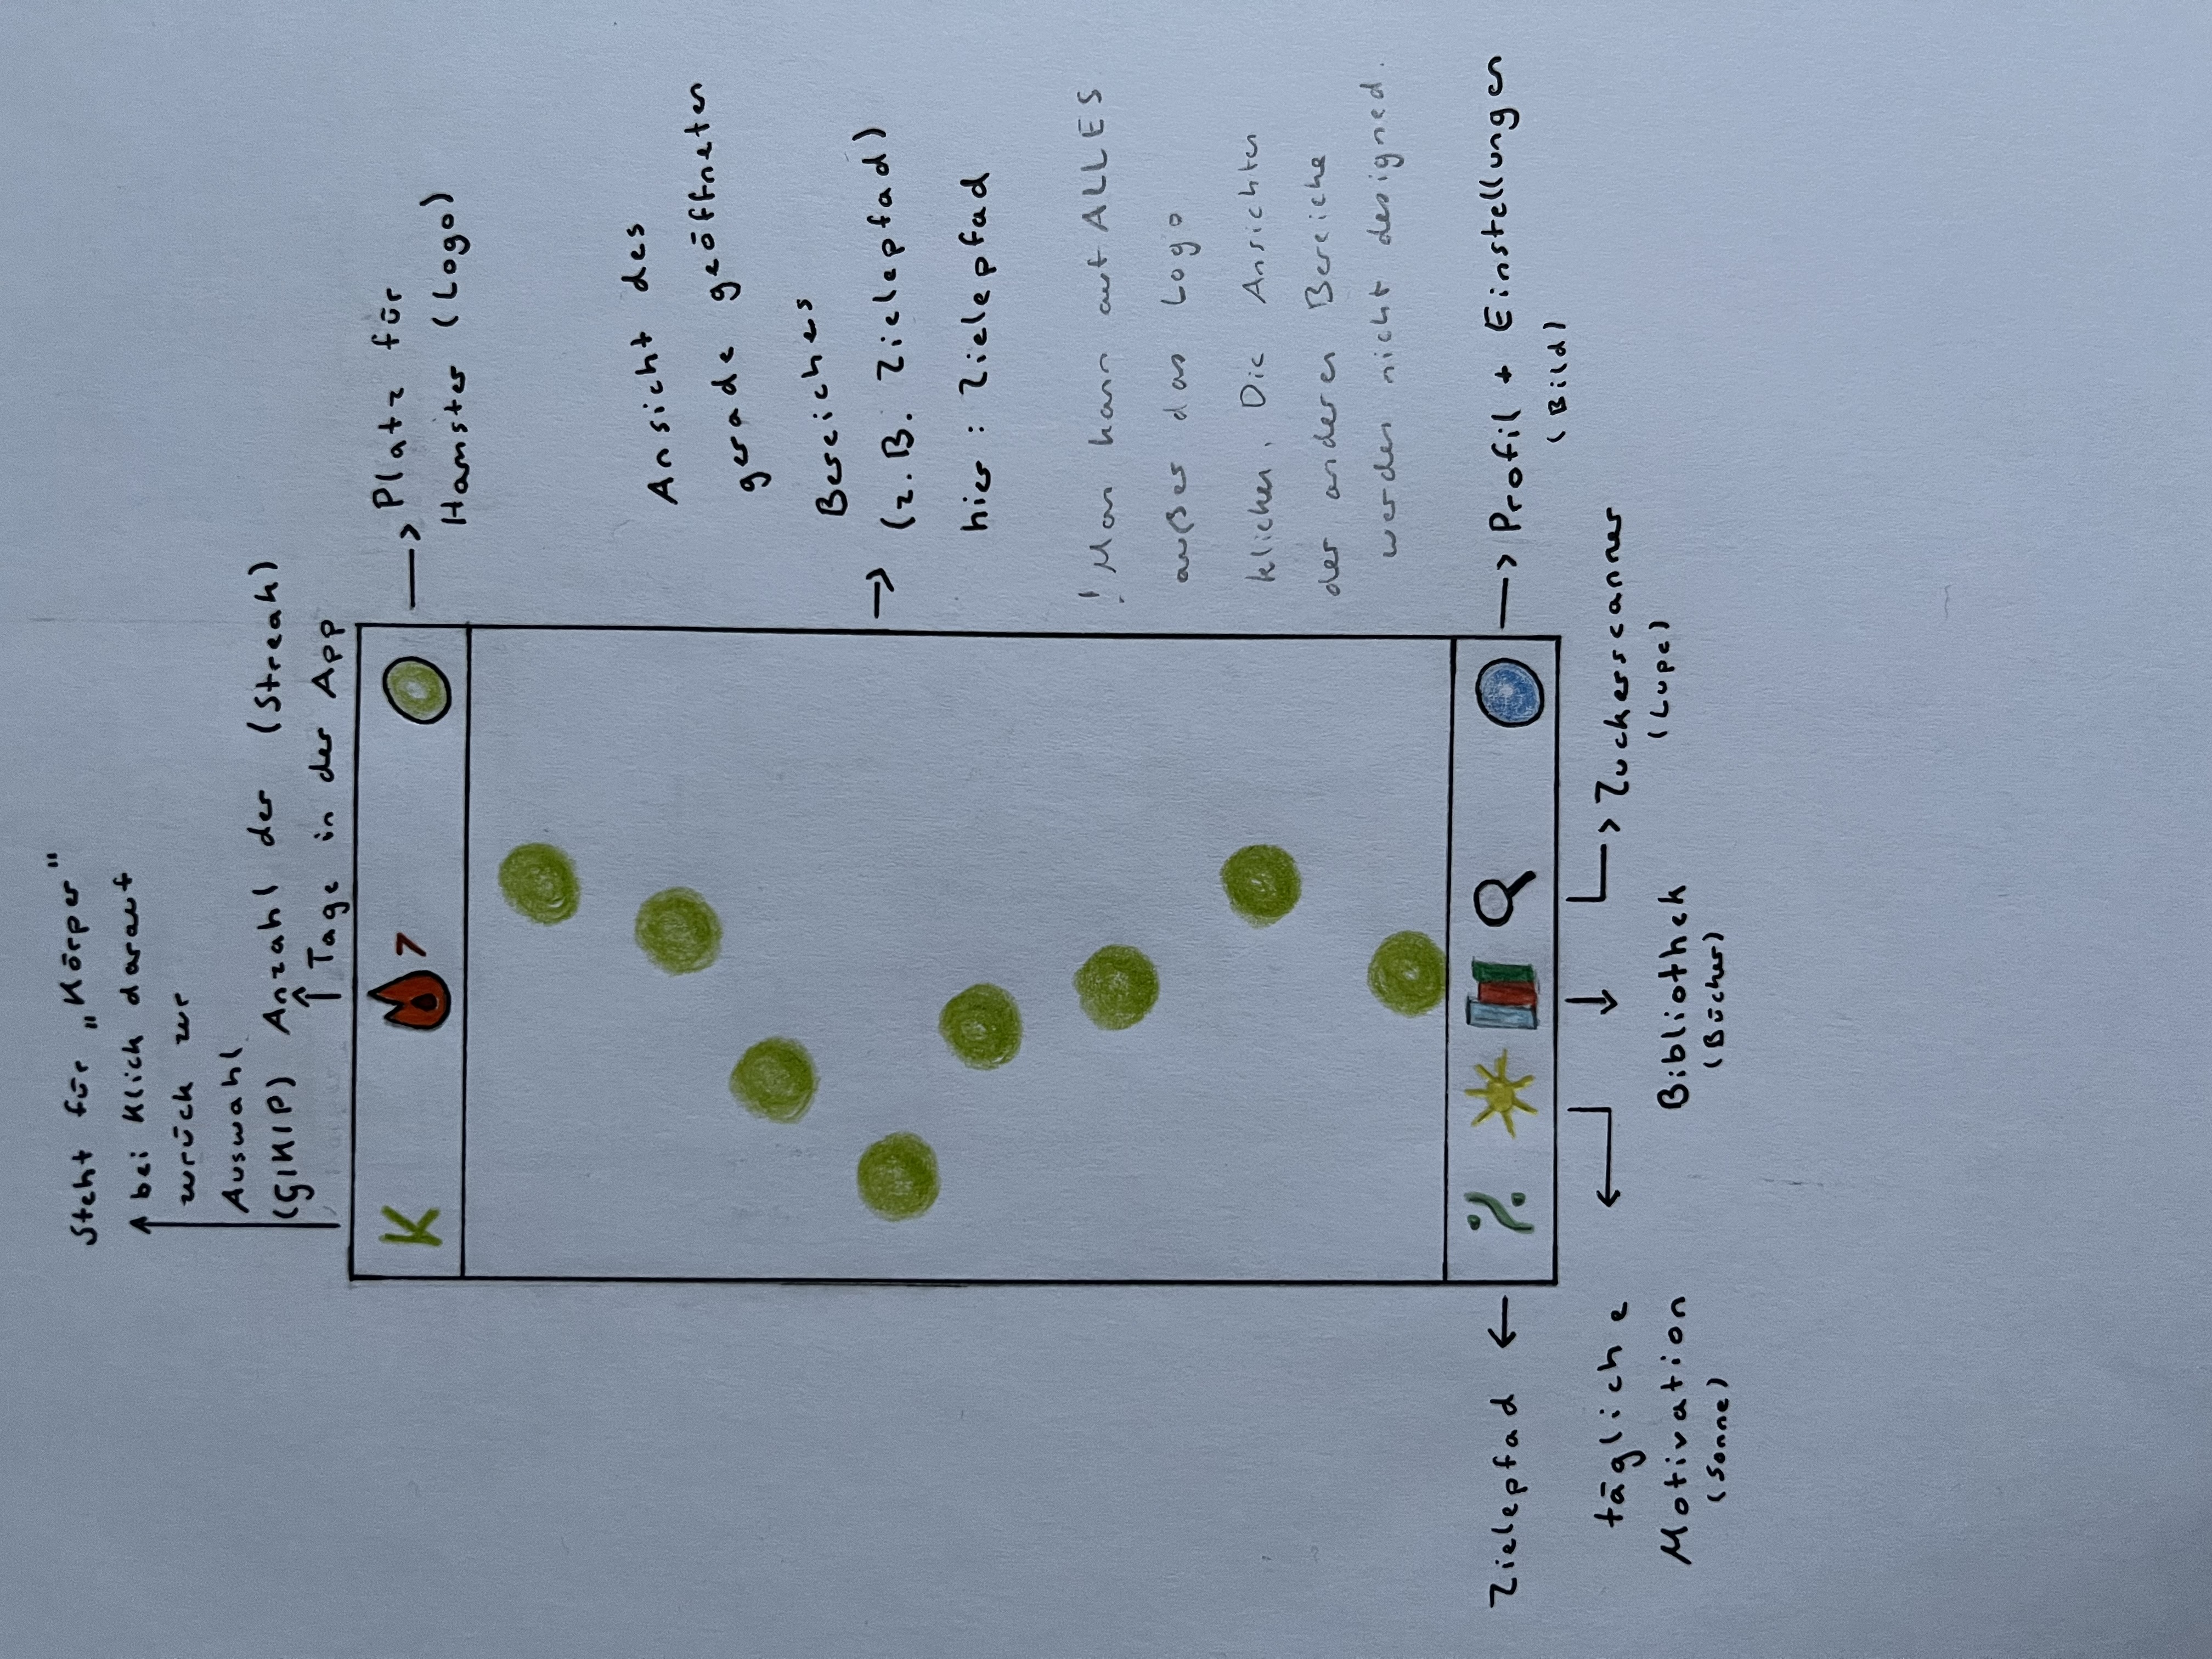 Steht für „Körper"
bei Klick darauf
zurück zur
Auswahl
(G/K/P)
Anzahl der (Streak)
Tage in der App
K
7
Platz für
Hamster (Logo)
Ansicht des
gerade geöffneten
Bereiches
(z.B. Zielepfad)
hier : Zielepfad
! Man kann auf ALLES
außer das Logo
klicken. Die Ansichten
der anderen Bereiche
werden nicht designed.
Zielepfad
Profil + Einstellungen
(Bild)
tägliche
Motivation
(Sonne)
Bibliothek
(Bücher)
Zuckerscanner
(Lupe)